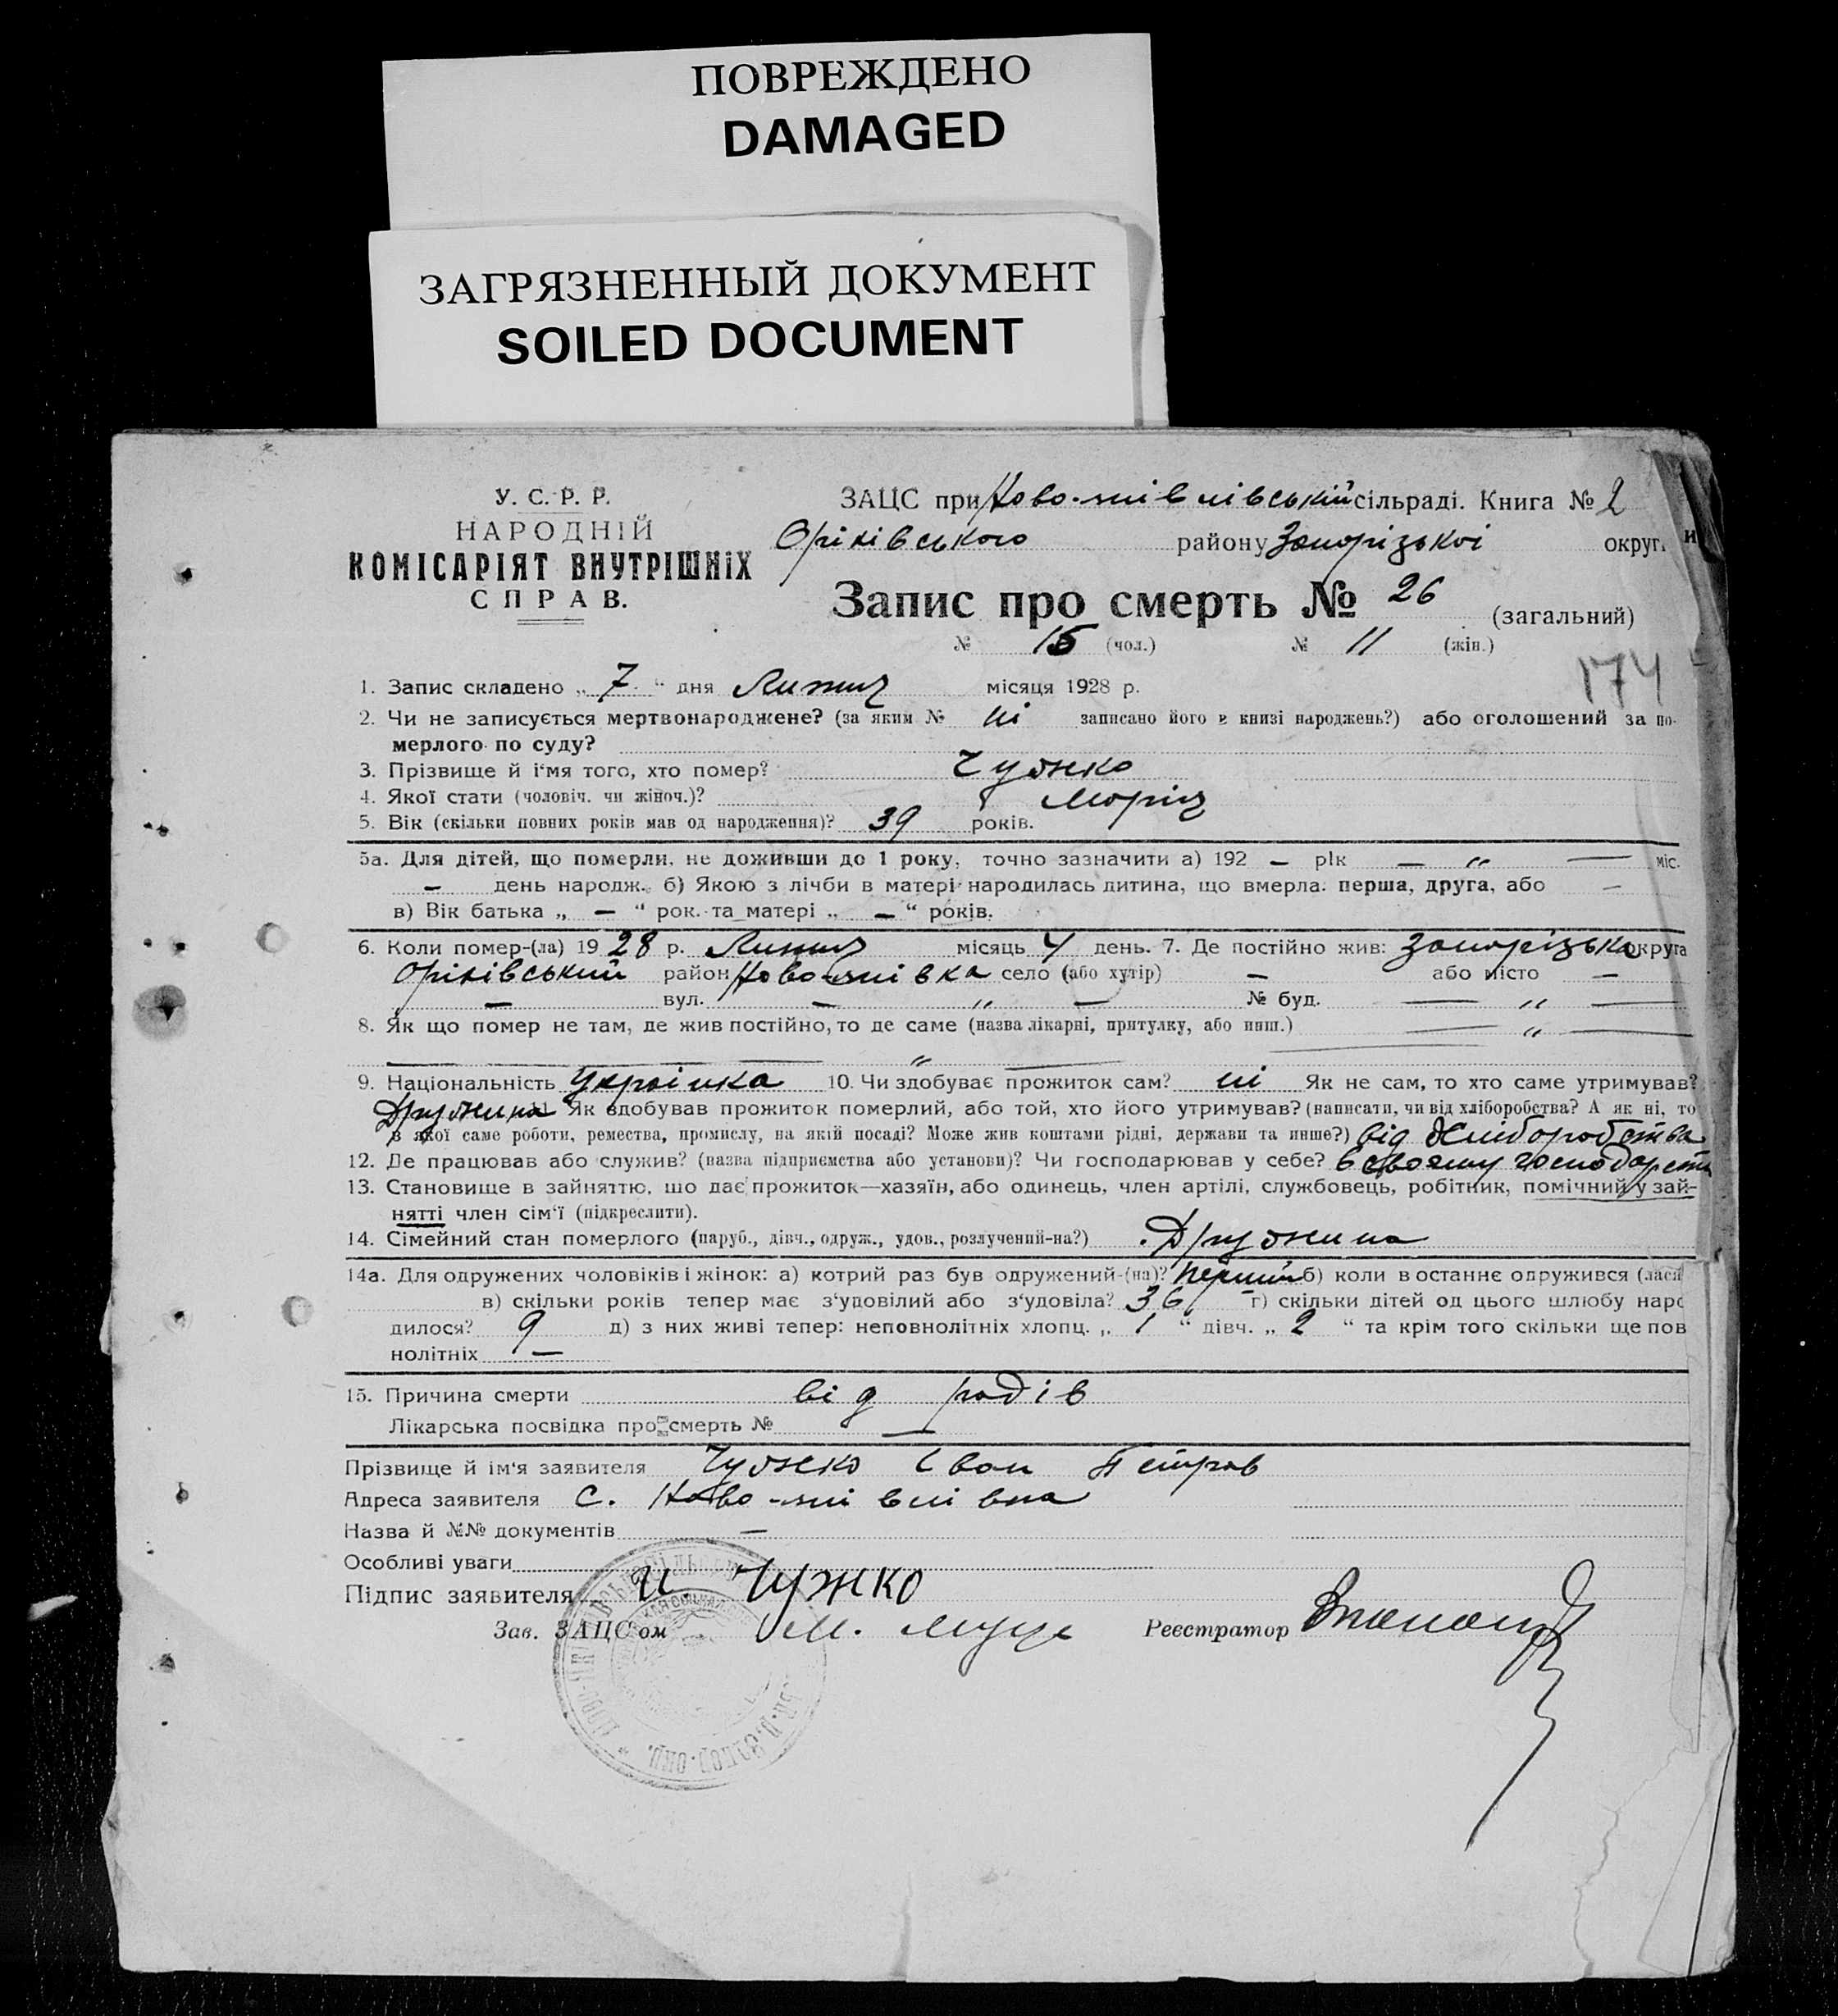 ПОВРЕЖДЕНО
DAMAGED
ЗАГРЯЗНЕННЫЙ ДОКУМЕНТ
SOILED DOCUMENT
У. С. Р. Р.
НАРОДНІЙ
КОМІСАРІЯТ ВНУТРІШНІХ
СПРАВ.
ЗАЦС при сільраді. Книга № 2
Оріхівського району Запорізької округи
Запис про смерть № 26 (загальний)
№ 15 (чол.) № 11 (жін.)
174
1. Запис складено „ 7 “ дня Липня місяця 1928 р.
2. Чи не записується мертвонароджене? (за яким № ні записано його в книзі народжень?) або оголошений за по-
мерлого по суду?
3. Прізвище й і‘мя того, хто помер? Чужко
4. Якої стати (чоловіч. чи жіноч.)? Марія
5. Вік (скільки повних років мав од народження)? 39 років.
5а. Для дітей, що померли, не доживши до 1 року, точно зазначити а) 192 — рік — „ — міс.
— день народж. б) Якою з лічби в матері народилась дитина, що вмерла: перша, друга, або —
в) Вік батька „ — “ рок. та матері „ — “ років.
6. Коли помер-(ла) 19 28 р. Липня місяць 4 день. 7. Де постійно жив: Запорізька округа
Оріхівський район село (або хутір) — або місто —
— вул. — „ — № буд. — „ —
8. Як що помер не там, де жив постійно, то де саме (назва лікарні, притулку, або инш.) — „ —
— — „ —
9. Національність Українка 10. Чи здобуває прожиток сам? ні Як не сам, то хто саме утримував?
Дружина 11. Як здобував прожиток померлий, або той, хто його утримував? (написати, чи від хліборобства? А як ні, то
з якої саме роботи, ремества, промислу, на якій посаді? Може жив коштами рідні, держави та инше?) від хліборобства
12. Де працював або служив? (назва підприємства або установи)? Чи господарював у себе? в своєму господарстві
13. Становище в зайняттю, що дає прожиток—хазяїн, або одинець, член артілі, службовець, робітник, помічний у зай-
нятті член сім‘ї (підкреслити).
14. Сімейний стан померлого (паруб., дівч., одруж., удов., розлучений-на?) Дружина
14а. Для одружених чоловіків і жінок: а) котрий раз був одружений-(на)? перший б) коли в останнє одружився (лася
в) скільки років тепер має з‘удовілий або з‘удовіла? 36 г) скільки дітей од цього шлюбу наро
дилося? 9 д) з них живі тепер: неповнолітніх хлопц. „ 1 “ дівч. „ 2 “ та крім того скільки ще пов
нолітніх —
15. Причина смерти від родів
Лікарська посвідка про смерть № —
Прізвище й ім‘я заявителя Чужко Іван Петров
Адреса заявителя с.
Назва й №№ документів —
Особливі уваги
Підпис заявителя И. Чужко
Зав. ЗАЦС‘ом М. Реєстратор